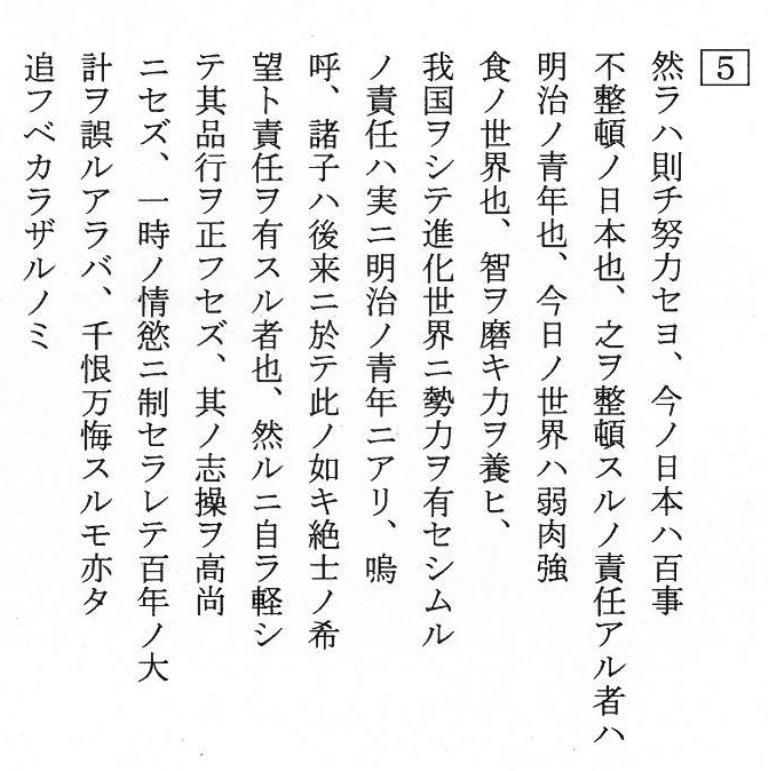 5
然ラハ則チ努力セヨ、今ノ日本ハ百事
不整頓ノ日本也、之ヲ整頓スルノ責任アル者ハ
明治ノ青年也、今日ノ世界ハ弱肉強
食ノ世界也、智ヲ磨キ力ヲ養ヒ、
我国ヲシテ進化世界ニ勢力ヲ有セシムル
ノ責任ハ実ニ明治ノ青年ニアリ、嗚
呼、諸子ハ後来ニ於テ此ノ如キ絶士ノ希
望ト責任ヲ有スル者也、然ルニ自ラ軽シ
テ其品行ヲ正フセズ、其ノ志操ヲ高尚
ニセズ、一時ノ情慾ニ制セラレテ百年ノ大
計ヲ誤ルアラバ、千恨万悔スルモ亦タ
追フベカラザルノミ